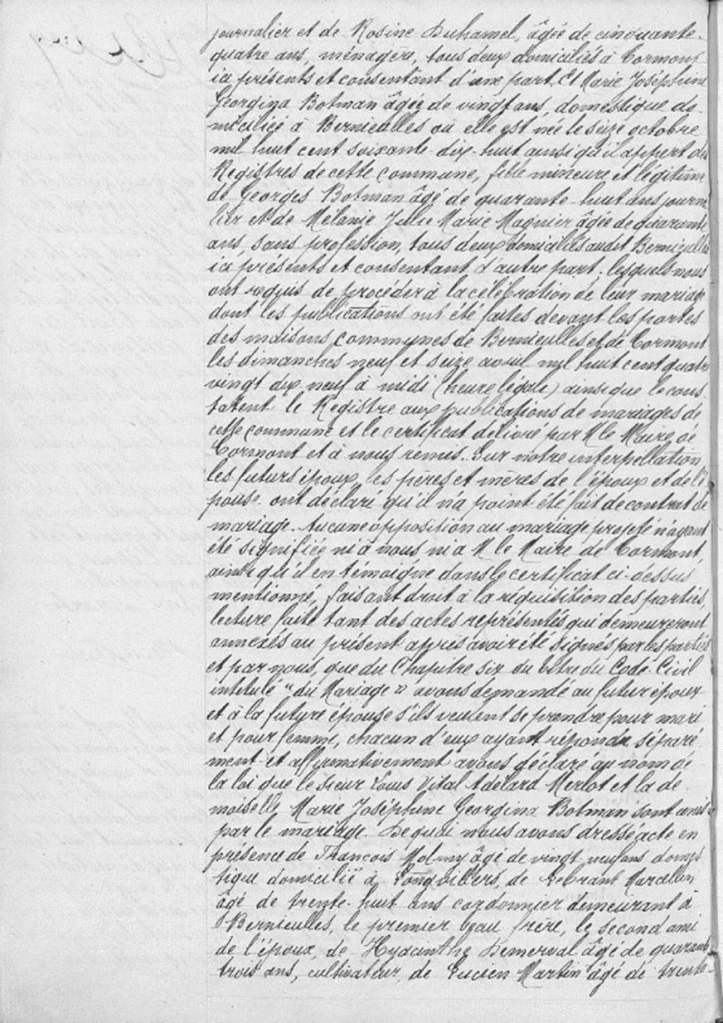 journalier et de Rosine Duhamel, âgée de cinquante-
quatre ans, ménagère, tous deux domiciliés à Cormont
ici présents et consentant d'une part. Et Marie Joséphine
Georgina Botman âgée de vingt ans, domestique do-
miciliée à Bernieulles où elle est née le seize octobre
mil huit cent soixante dix-huit ainsi qu'il appert des
Registres de cette commune, fille mineure et légitime
de Georges Botman âgé de quarante-huit ans journa
lier et de Mélanie Julie Marie Magnier âgée de quarante
ans, sans profession, tous deux domiciliés audit Bernieulles
ici présents et consentant d'autre part. lesquels nous
ont requis de procéder à la célébration de leur mariage
dont les publications ont été faites devant les portes
des maisons communes de Bernieulles et de Cormont
les dimanches neuf et seize avril mil huit cent quatre
vingt dix neuf à midi (heure légale) ainsi que le cons
tatent le Registre aux publications de mariages de
cette commune et le certificat délivré par M le Maire de
Cormont et à nous remis. Sur notre interpellation
les futurs époux, les pères et mères de l'époux et de l'é
pouse ont déclaré qu'il n'a point été fait de contrat de
mariage. Aucune opposition au mariage projeté n'ayant
été signifiée ni à nous ni à M le Maire de Cormont
ainsi qu'il en témoigne dans le certificat ci-dessus
mentionné, faisant droit à la réquisition des parties,
lecture faite tant des actes représentés qui demeureront
annexés au présent après avoir été signés par les parties
et par nous, que du Chapitre six du titre du Code Civil
intitulé "du Mariage" avons demandé au futur époux
et à la future épouse s'ils veulent se prendre pour mari
et pour femme, chacun d'eux ayant répondu séparé
ment et affirmativement avons déclaré au nom de
la loi que le sieur Louis Vital Adelard Merlot et la de
moiselle Marie Joséphine Georgina Botman sont unis
par le mariage. De quoi nous avons dressé acte en
présence de François âgé de vingt-neuf ans domes
tique domicilié à Longvillers, de Marcellin
âgé de trente-huit ans cordonnier demeurant à
Bernieulles, le premier beau frère, le second ami
de l'époux, de Hyacinthe Demerval âgé de quarante
trois ans, cultivateur, de Lucien Martin âgé de trente-